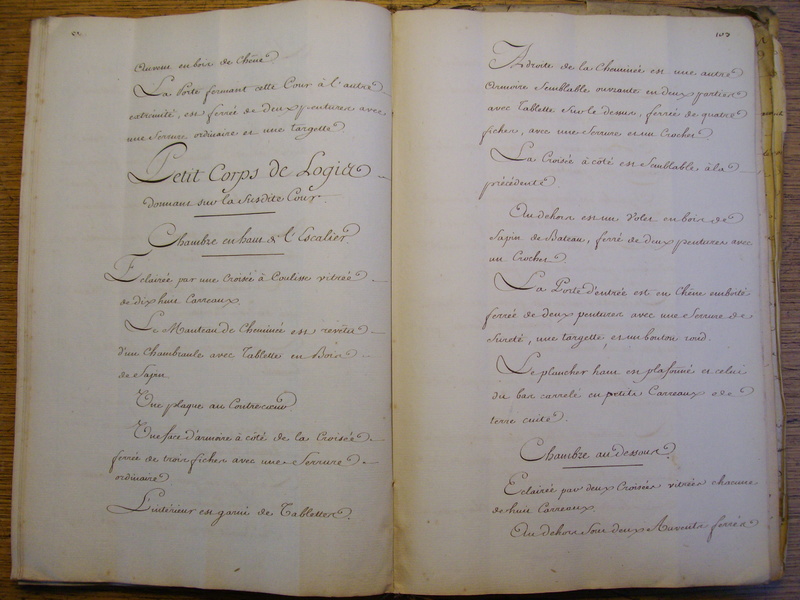 Auvent en bois de Chêne
La Porte fermant cette Cour à l'autre
extremité, est ferrée de deux pentures avec
une Serrure ordinaire et une targette
Petit Corps de Logis
donnant sur la Susdite Cour.
Chambre en haut de l'Escalier
Eclairée par une Croisée à Coulisse vitrée
de dix huit Carreaux.
Le Manteau de Cheminée est revêtu
d'un Chambranle avec Tablette en Bois
de Sapin
Une plaque au Contrecoeur
Une face d'armoire à côté de la Croisée
ferrée de trois fiches avec une Serrure
ordinaire
L'intérieur est garni de Tablettes.
103
A droite de la Cheminée est une autre
Armoire Semblable ouvrante en deux parties
avec Tablette Sur le dessus, ferrée de quatre
fiches, avec une Serrure et un Crochet
La Croisée à côté est Semblable à la
précédente
Au dehors est un Volet en bois de
Sapin de Bateau, ferré de deux pentures avec
un Crochet
La Porte d'entrée est en Chêne emboité
ferrée de deux pentures avec une Serrure de
Sureté, une targette, et un bouton rond.
Le plancher haut est plafonné et celui
du bas carrelé en petits Carreaux de
terre cuite.
Chambre au dessous.
Eclairée par deux Croisées vitrées chacune
de huit Carreaux.
Au dehors Sont deux Auvents ferrés